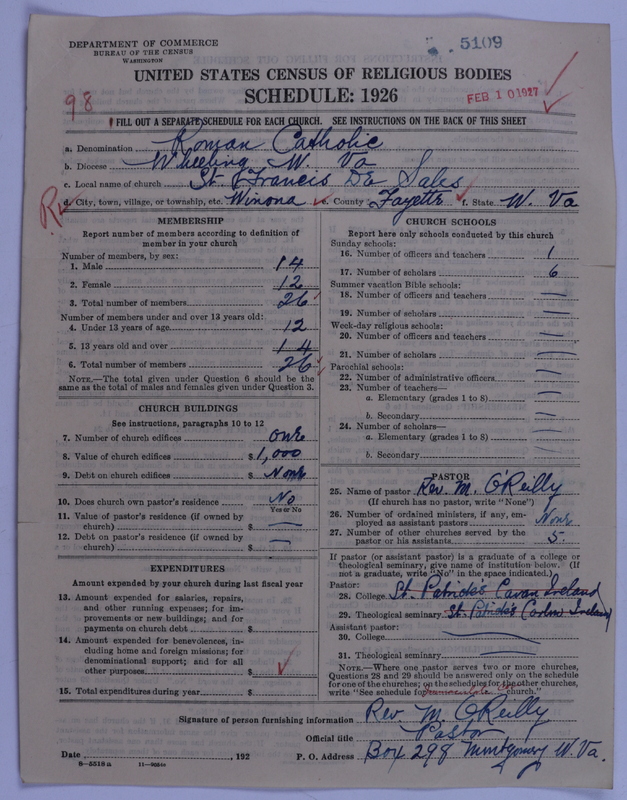 DEPARTMENT OF COMMERCE
BUREAU OF THE CENSUS
WASHINGTON
5109
UNITED STATES CENSUS OF RELIGIOUS BODIES
SCHEDULE: 1926
98
FEB 10 1927
FILL OUT A SEPARATE SCHEDULE FOR EACH CHURCH. SEE INSTRUCTIONS ON THE BACK OF THIS SHEET
a. Denomination Roman Catholic
b. Diocese Wheeling W. Va
c. Local name of church St. Francis De Sales
d. City, town, village, or township, etc. Winona e. County Fayette f. State W. Va
MEMBERSHIP
Report number of members according to definition of
member in your church
Number of members, by sex:
1. Male 14
2. Female 12
3. Total number of members 26
Number of members under and over 13 years old:
4. Under 13 years of age 12
5. 13 years old and over 14
6. Total number of members 26
NOTE.—The total given under Question 6 should be the
same as the total of males and females given under Question 3.
CHURCH BUILDINGS
See instructions, paragraphs 10 to 12
7. Number of church edifices one
8. Value of church edifices $1,000
9. Debt on church edifices $ None
10. Does church own pastor's residence No
Yes or No
11. Value of pastor's residence (if owned by
church) $ —
12. Debt on pastor's residence (if owned by
church) $ —
EXPENDITURES
Amount expended by your church during last fiscal year
13. Amount expended for salaries, repairs,
and other running expenses; for im-
provements or new buildings; and for
payments on church debt $
14. Amount expended for benevolences, in-
cluding home and foreign missions; for
denominational support; and for all
other purposes $
15. Total expenditures during year $
CHURCH SCHOOLS
Report here only schools conducted by this church
Sunday schools:
16. Number of officers and teachers 1
17. Number of scholars 6
Summer vacation Bible schools:
18. Number of officers and teachers —
19. Number of scholars —
Week-day religious schools:
20. Number of officers and teachers —
21. Number of scholars —
Parochial schools:
22. Number of administrative officers —
23. Number of teachers—
a. Elementary (grades 1 to 8) —
b. Secondary —
24. Number of scholars—
a. Elementary (grades 1 to 8) —
b. Secondary —
PASTOR
25. Name of pastor Rev. M. O'Reilly
(If church has no pastor, write "None")
26. Number of ordained ministers, if any, em-
ployed as assistant pastors None
27. Number of other churches served by the
pastor or his assistants 5
If pastor (or assistant pastor) is a graduate of a college or
theological seminary, give name of institution below. (If
not a graduate, write "No" in the space indicated.)
Pastor:
28. College St. Patrick's Cavan Ireland
29. Theological seminary St. Patrick's Carlow Ireland
Assistant pastor:
30. College —
31. Theological seminary —
NOTE.—Where one pastor serves two or more churches,
Questions 28 and 29 should be answered only on the schedule
for one of the churches; on the schedules for the other churches,
write "See schedule for Immaculate church."
Signature of person furnishing information Rev. M. O'Reilly
Official title Pastor
Date , 192 P. O. Address Box 298 Montgomery W. Va.
8-5518 a